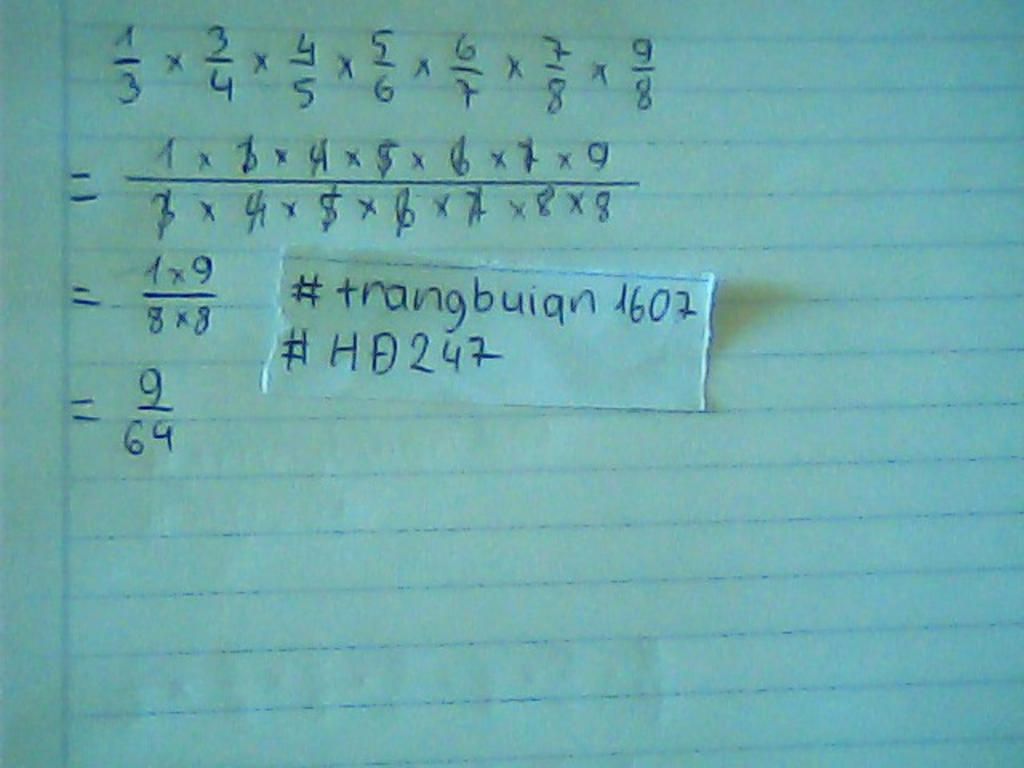 1/3 × 3/4 × 4/5 × 5/6 × 6/7 × 7/8 × 9/8
= (1 × 3 × 4 × 5 × 6 × 7 × 9)/(3 × 4 × 5 × 6 × 7 × 8 × 8)
= (1 × 9)/(8 × 8)
# trangbuian 1607
# HĐ247
= 9/64